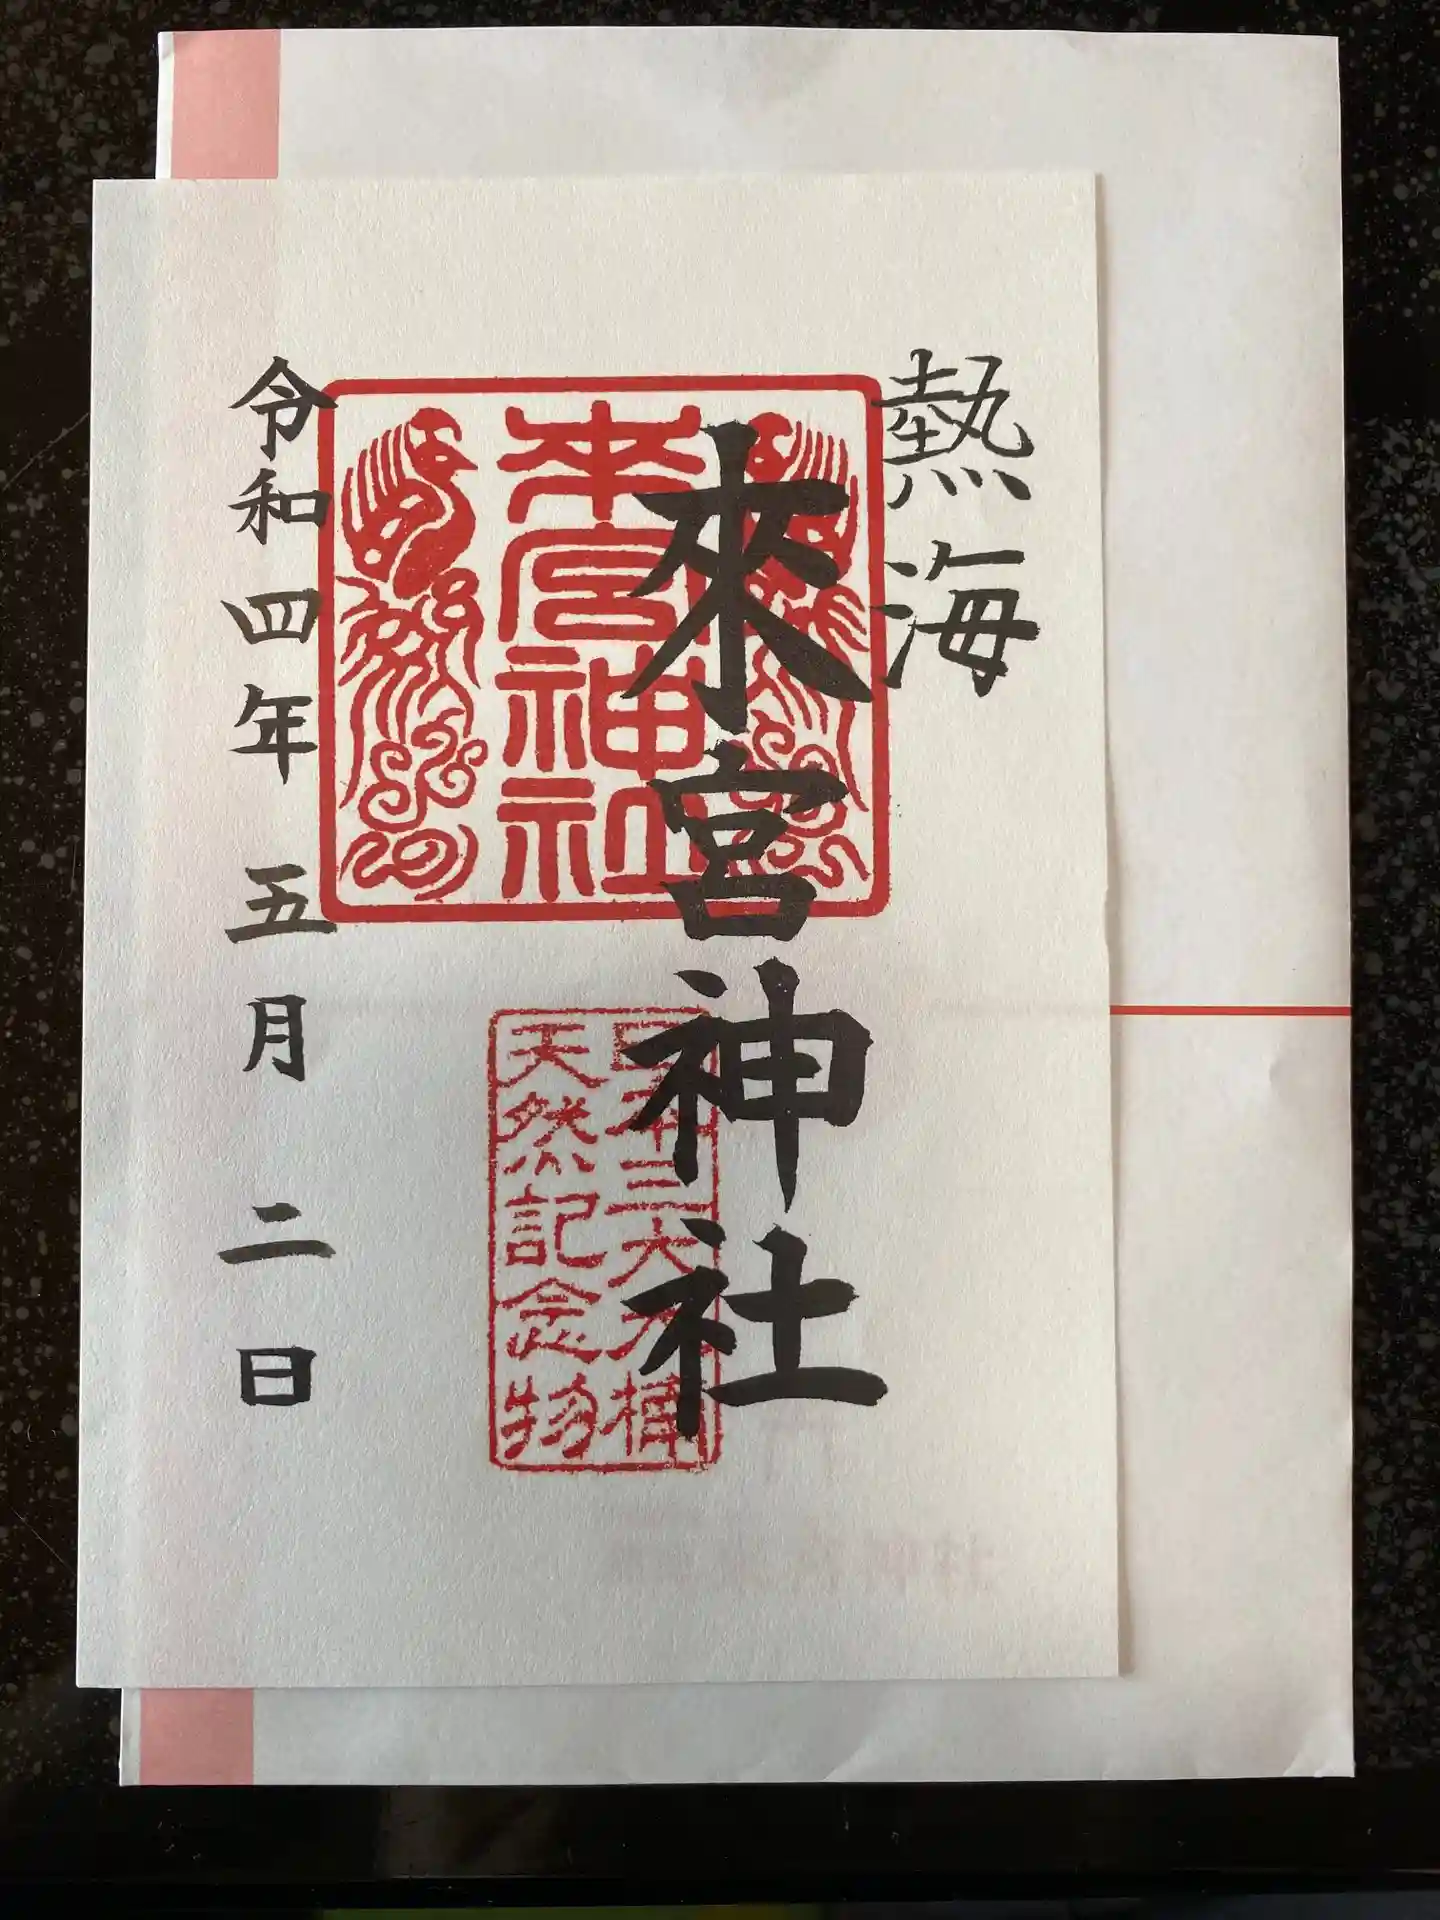 熱海
來宮神社
来宮神社
日本三大大楠
天然記念物
令和四年 五月 二日